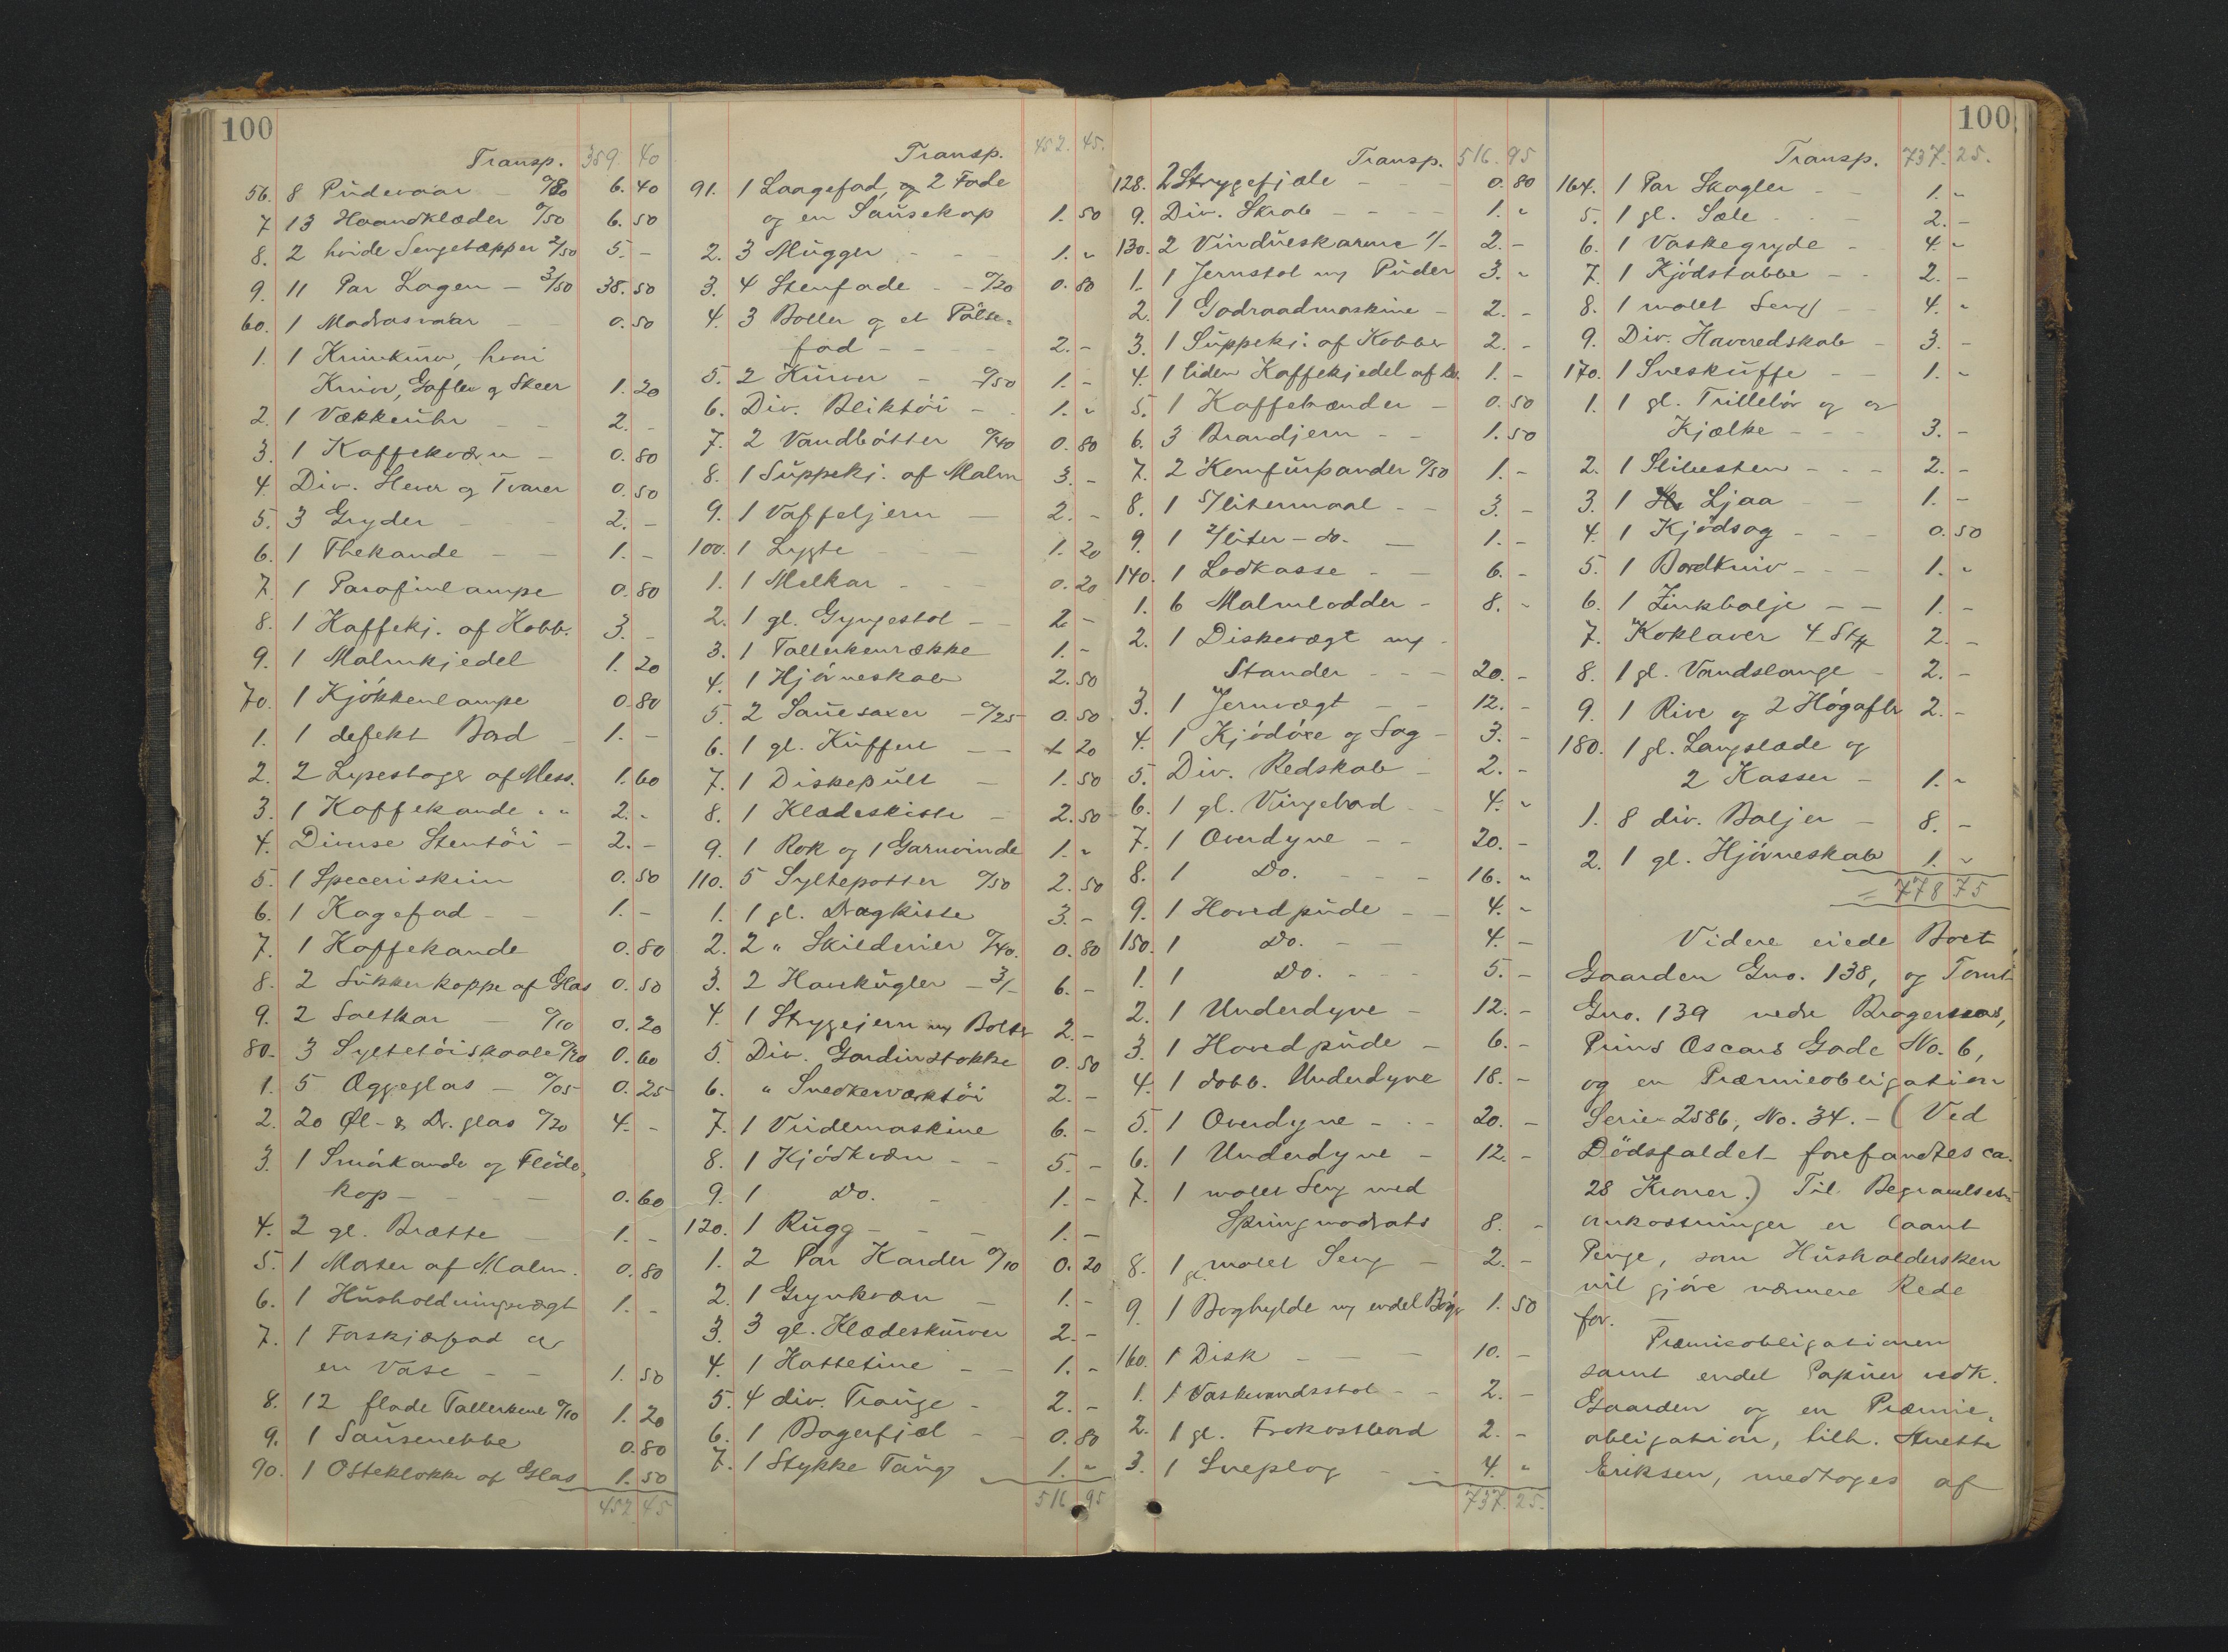 100
Transp. 359. 40
56. 8 Pudevaar 0/80 6. 40
7 13 Haandklæder 0/50 6. 50
8. 2 hvide Sengetæpper 2/50 5. -
9. 11 Par Lagen - 3/50 38. 50
60. 1 Madrasvaar - 0. 50
1. 1 Knivkurv, hvori
Knive, Gafler og Skeer 1. 20
2. 1 Vækkeuhr - - 2. -
3. 1 Kaffekværn - 0. 80
4. Div. Slever og Tvarer 0. 50
5. 3 Gryder - - 2. -
6. 1 Thekande - - 1. -
7. 1 Parafinlampe 0. 80
8. 1 Kaffekj. af Kobb. 3. -
9. 1 Malmkjedel 1. 20
70. 1 Kjøkkenlampe 0. 80
1. 1 defekt Bord - 1. -
2. 2 Lysestager af Mess. 1. 60
3. 1 Kaffekande " " 2. -
4. Diverse Stentöi - 2. -
5. 1 Speceriskrin 0. 50
6. 1 Kagefad - - 1. -
7. 1 Kaffekande 0. 80
8. 2 Sukkerkoppe af Glas 0. 50
9. 2 Saltkar - 0/10 0. 20
80. 3 Syltetöiskaale 0/20 0. 60
1. 5 Æggeglas - 0/05 0. 25
2. 20 Øl- & Dr. glas 0/20 4. -
3. 1 Smörkande og Flöde-
kop - - - - 0. 60
4. 2 gl. Brætte - 1. -
5. 1 Morter af Malm. 0. 80
6. 1 Husholdningsvægt 1. -
7. 1 Forskjærfad og
en Vase - - 1. 50
8. 12 flade Tallerkene 0/10 1. 20
9. 1 Sausenebbe 0. 80
90. 1 Osteklokke af Glas 1. 50
452 45
Transp. 452. 45.
91. 1 Laagefad, og 2 Fade
og en Sausekop 1. 50
2. 3 Mugger - - - 1. "
3. 4 Stenfade - - 0/20 0. 80
4. 3 Boller og et Pölse-
fad - - - 2. -
5. 2 Kurver - 0/50 1. -
6. Div. Bliktöi - - 1. "
7. 2 Vandbötter 0/40 0. 80
8. 1 Suppekj. af Malm 3. -
9. 1 Vaffeljern - 2. -
100. 1 Lygte - - - 1. 20
1. 1 Melkar - - 0. 20
2. 1 gl. Gyngestol - - 2. -
3. 1 Tallerkenrække 1. -
4. 1 Hjörneskab 2. 50
5. 2 Sauesaxer - 0/25 0. 50
6. 1 gl. Kuffert - - 1. 20
7. 1 Diskepult - 1. 50
8. 1 Klædeskiste - 2. 50
9. 1 Rok og 1 Garnvinde 1. "
110. 5 Syltepotter 0/50 2. 50
1. 1 gl. Dragkiste 3. -
2. 2 " Skilderier 0/40. 0. 80
3. 2 Havekugler - 3/- 6. -
4. 1 Strygejern m/ Bolter 2. -
5. Div. Gardinstokke 0. 50
6. " Snedkerværktöi 2. -
7. 1 Vridemaskine 6. -
8. 1 Kjödkværn - - 5. -
9. 1 Do. - 1. -
120. 1 Rugg - - - 1. -
1. 2 Par Karder 0/10 0. 20
2. 1 Grynkværn - 1. -
3. 3 gl. Klædeskurver 2. -
4. 1 Hattetine - - 1. -
5. 4 div. Trauge - 2. -
6. 1 Bagerfjæl - - 0. 80
7. 1 Stykke Taug 1. "
516 95
Transp. 516. 95
128. 2 Strygefjæle - - - 0. 80
9. Div. Skrab - - - - 1. "
130. 2 Vindueskarme 1/- 2. -
1. 1 Jernstol m/ Puder 3. "
2. 1 Godraadmaskine - 2. -
3. 1 Suppekj. af Kobber 2. -
4. 1 liden Kaffekjedel af do. 1. -
5. 1 Kaffebrænder - 0. 50
6. 3 Brandjern - - 1. 50
7. 2 Komfurpander 0/50 1. -
8. 1 5/litermaal - - 3. -
9. 1 2/liter - do. - 1. -
140. 1 Lodkasse - - 6. -
1. 6 Malmlodder - 8. "
2. 1 Diskevægt m/
Stander - - - 20. -
3. 1 Jernvægt - - 12. -
4. 1 Kjödöxe og Sag - 3. -
5. Div. Redskab - 2. -
6. 1 gl. Vingebord - - 4. "
7. 1 Overdyne - - 20. -
8. 1 Do. - - - 16. "
9. 1 Hovedpude - - 4. "
150. 1 Do. - - 4. -
1. 1 Do. - - - 5. -
2. 1 Underdyne - 12. -
3. 1 Hovedpude - 6. -
4. 1 dobb. Underdyne 18. -
5. 1 Overdyne - - - 20. -
6. 1 Underdyne - 12. -
7. 1 malet Seng med
Springmadrats 8. -
8. 1 gl. malet Seng - 2. -
9. 1 Boghylde m/ endel Böger 1. 50
160. 1 Disk - - - 10. -
1. 1 Vaskevandsstol - - 2. -
2. 1 gl. Frokostbord 2. -
3. 1 Sneplog - - 4. "
737. 25.
100
Transp. 737. 25.
164. 1 Par Skagler - - 1. "
5. 1 gl. Sæle - - - 2. -
6. 1 Vaskegryde - 4. "
7. 1 Kjödstabbe - - 2. -
8. 1 malet Seng - - 4. "
9. Div. Haveredskab - 3. -
170. 1 Sneskuffe - - 1. "
1. 1 gl. Trillebör og en
Kjælke - - - 3. -
2. 1 Slibesten - - - 2. -
3. 1 Ljaa - - 1. -
4. 1 Kjödsag - - - 0. 50
5. 1 Bordkniv - - - 1. "
6. 1 Zinkbalje - - 1. -
7. Koklaver 4 Stk 2. -
8. 1 gl. Vandslange - 2. -
9. 1 Rive og 2 Högafler 2. -
180. 1 gl. Langslæde og
2 Kasser - 1. "
1. 8 div. Baljer - 8. -
2. 1 gl. Hjörneskab 1. "
= 778 75
Videre eiede Boet
Gaarden Gno. 138, og Tomt
Gno. 139 nedre Bragernæs,
Prins Oscars Gade No. 6,
og en Præmieobligation
Serie 2586, No. 34. - (Ved
Dödsfaldet forefandtes ca.
28 Kroner.) Til Begravelses-
omkostninger er laant
Penge, som Husholdersken
vil gjöre nærmere Rede
for.
Præmieobligationen
samt endel Papirer vedk.
Gaarden og en Præmie-
obligation, tilh. Anette
Eriksen, medtoges af